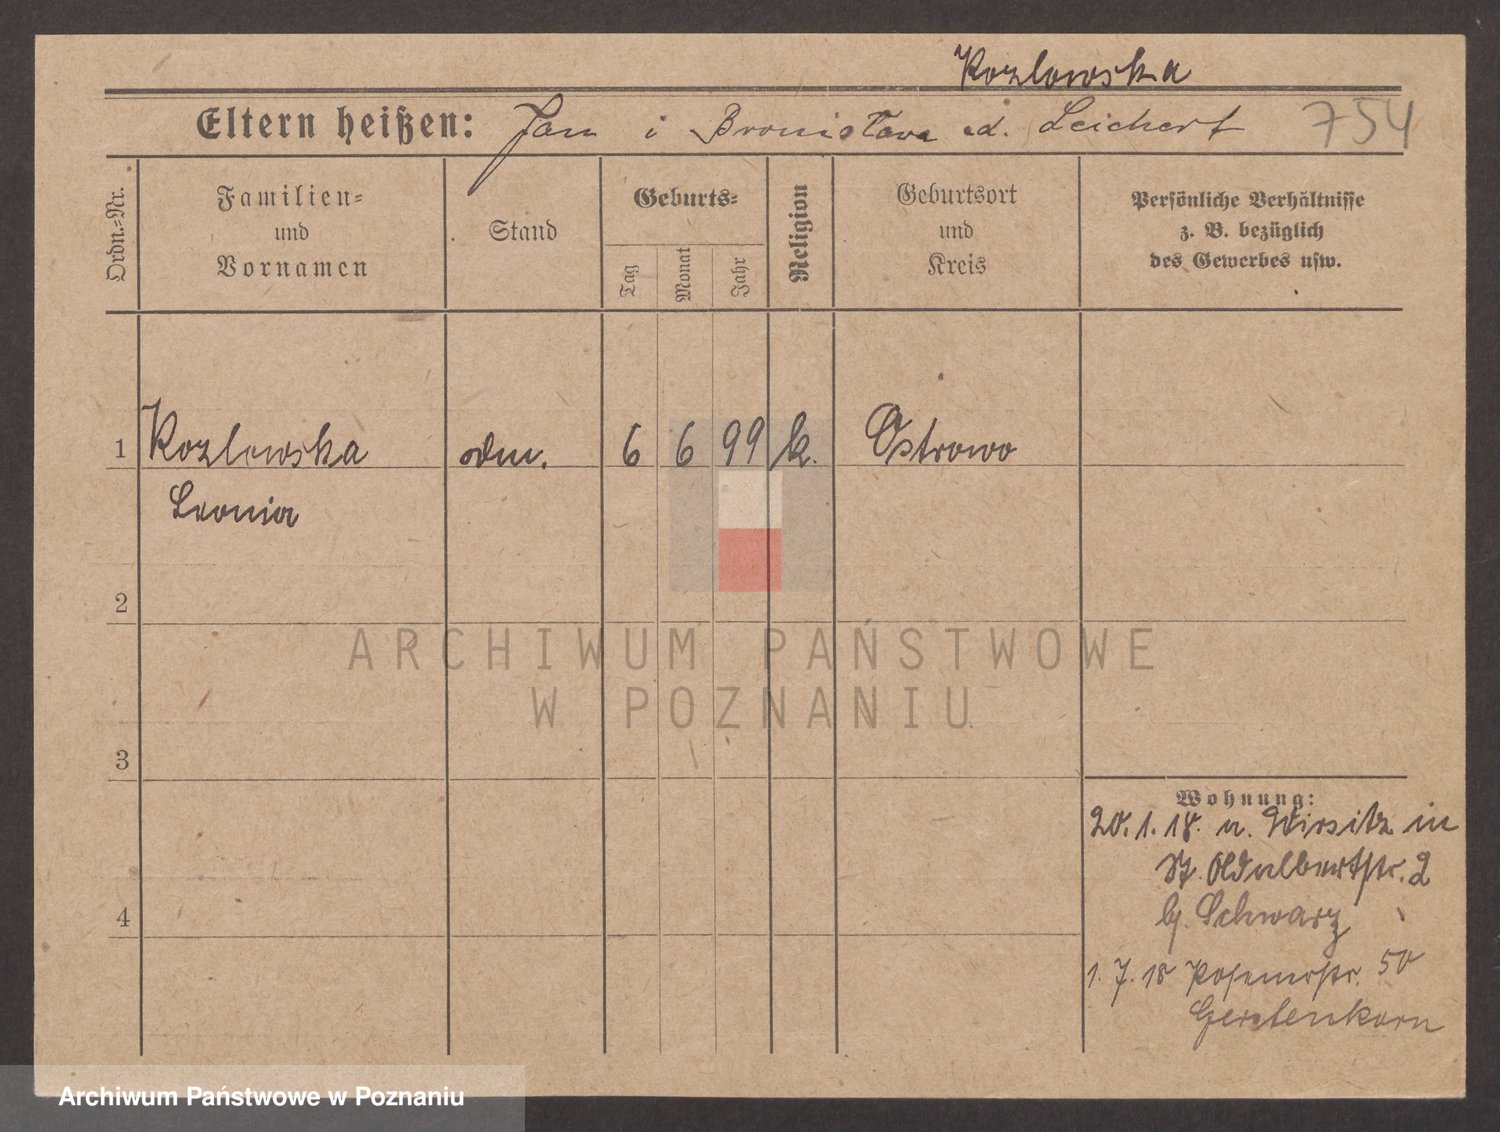 Kozlowska
Eltern heißen: Jan i Bronisława id. Leichert 754
Ordn.=Nr.
Familien=
und
Vornamen
Stand
Geburts=
Tag
Monat
Jahr
Religion
Geburtsort
und
Kreis
Persönliche Verhältnisse
z. B. bezüglich
des Gewerbes usw.
1 Kozlowska 6 6 99 k. Ostrowo
Leonia
2
ARCHIWUM PAŃSTWOWE
W POZNANIU
3
Wohnung:
20. 1. 18. n. Wirsitz in
St. Adalbertstr. 2
bj. Schwarz
4
1. 7. 18 Posenerstr. 50
Gerstenkorn
Archiwum Państwowe w Poznaniu